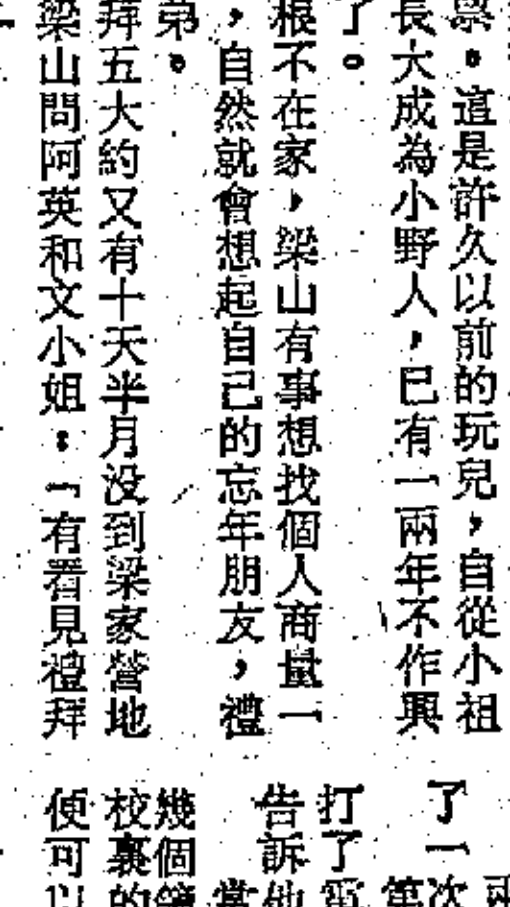 票。這是許久以前的玩兒，自從小祖
長大成為小野人，已有一兩年不作興
了。
根不在家，梁山有事想找個人商量一
，自然就會想起自己的忘年朋友，禮
弟。
拜五大約又有十天半月没到梁家營地
梁山問阿英和文小姐：「有看見禮拜
了一次
打了電
告訴他
幾個
校裏的
便可以